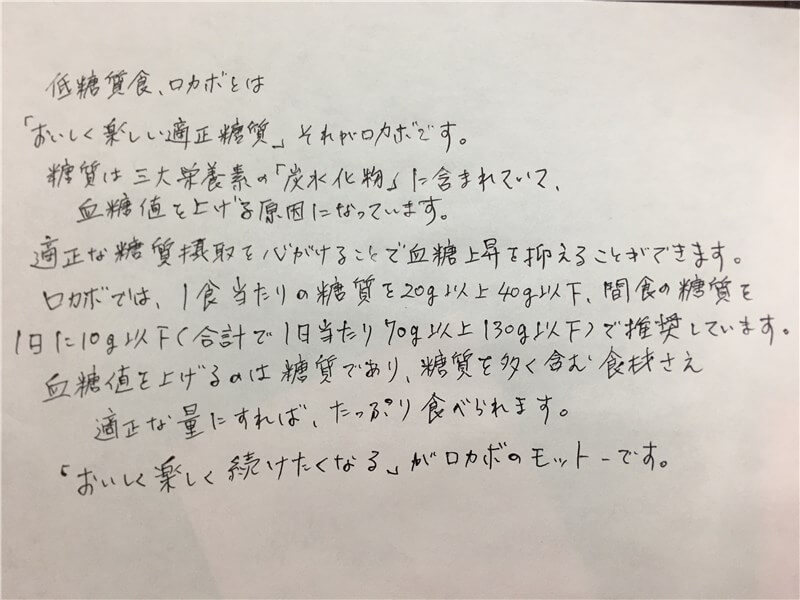 低糖質食、ロカボとは
「おいしく楽しい適正糖質」それがロカボです。
糖質は三大栄養素の「炭水化物」に含まれていて、
血糖値を上げる原因になっています。
適正な糖質摂取を心がけることで血糖上昇を抑えることができます。
ロカボでは、1食当たりの糖質を20g以上40g以下、間食の糖質を
1日に10g以下(合計で1日当たり70g以上130g以下)で推奨しています。
血糖値を上げるのは糖質であり、糖質を多く含む食材さえ
適正な量にすれば、たっぷり食べられます。
「おいしく楽しく続けたくなる」がロカボのモットーです。